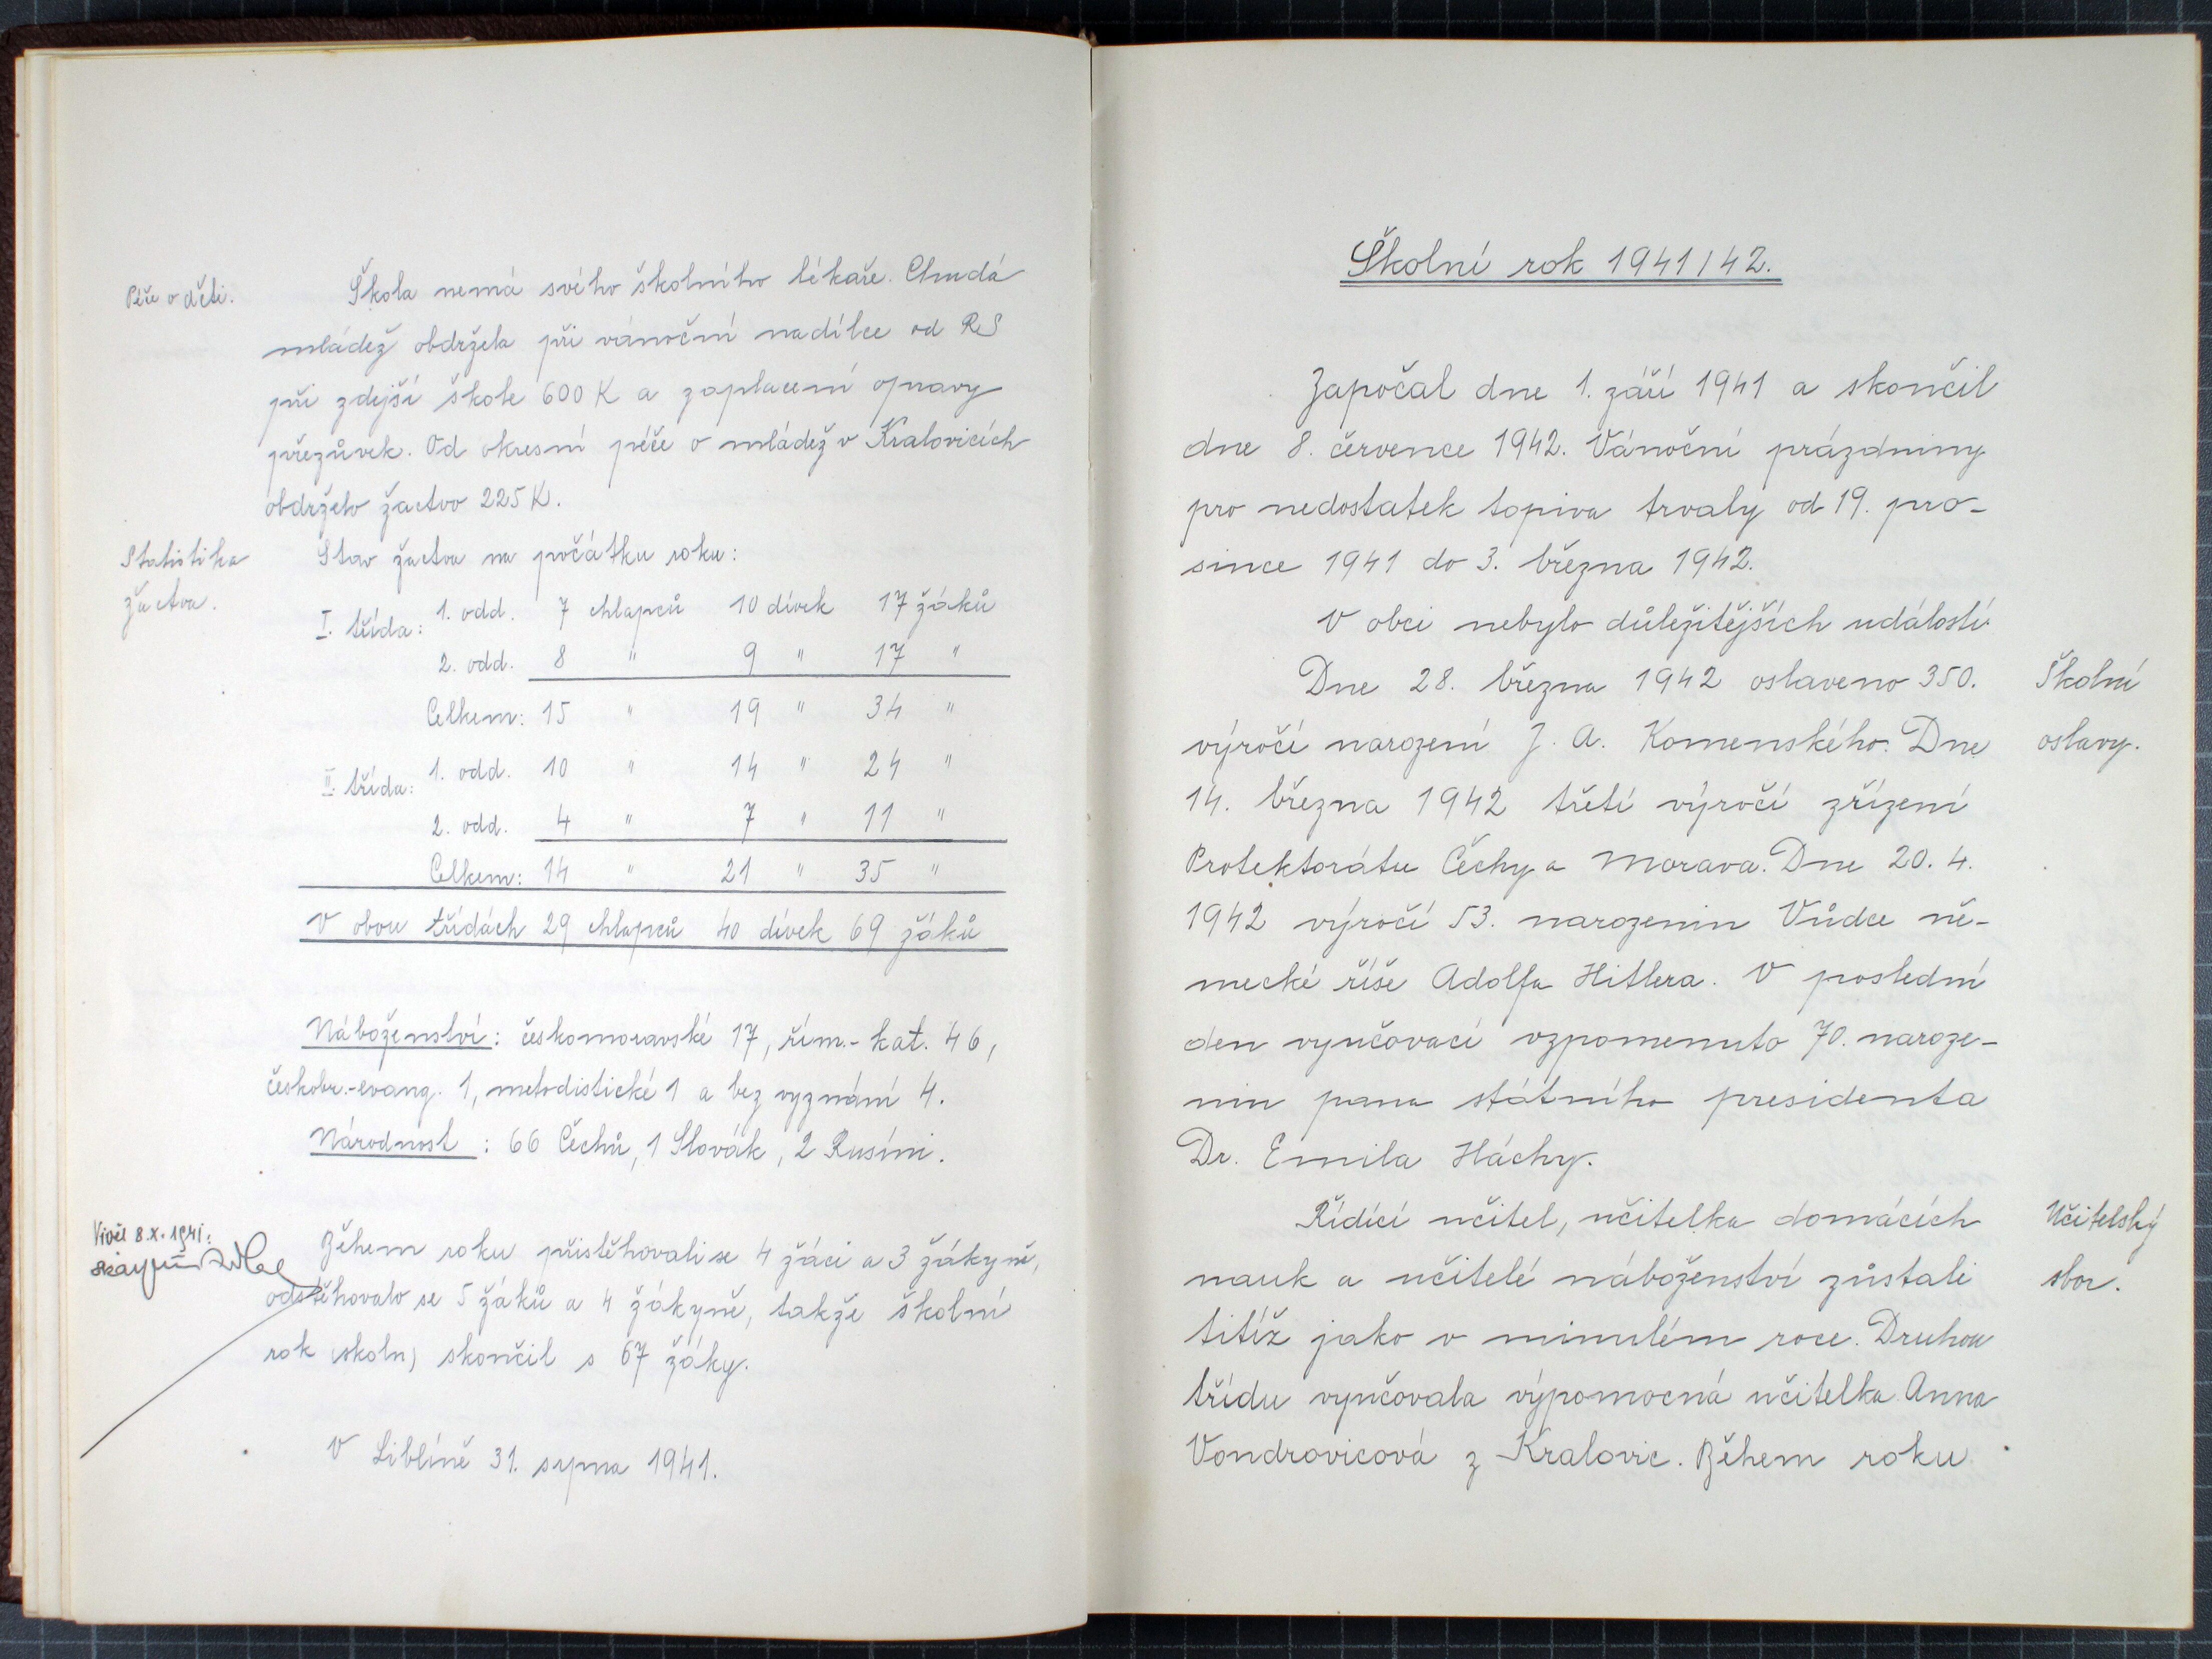 Péče o děti.
Škola nemá svého školního lékaře. Chudá
mládež obdržela při vánoční nadílce od RS
při zdejší škole 600 K a zaplacení opravy
přezůvek. Od okresní péče o mládež v Kralovicích
obdrželo žactvo 225 K.
Statistika
žactva.
Stav žactva na počátku roku:
I. třída: 1. odd. 7 chlapců 10 dívek 17 žáků
2. odd. 8 " 9 " 17 "
Celkem: 15 " 19 " 34 "
II. třída: 1. odd. 10 " 14 " 24 "
2. odd. 4 " 7 " 11 "
Celkem: 14 " 21 " 35 "
V obou třídách 29 chlapců 40 dívek 69 žáků
Náboženství: českomoravské 17, řím.-kat. 46,
českobr.-evang. 1, metodistické 1 a bez vyznání 4.
Národnost: 66 Čechů, 1 Slovák, 2 Rusíni.
Viděl 8.X.1941:
Během roku přistěhovali se 4 žáci a 3 žákyně,
odstěhovalo se 5 žáků a 4 žákyně, takže školní
rok (školn) skončil s 67 žáky.
V Liblíně 31. srpna 1941.
Školní rok 1941/42.
Započal dne 1. září 1941 a skončil
dne 8. července 1942. Vánoční prázdniny
pro nedostatek topiva trvaly od 19. pro-
since 1941 do 3. března 1942.
V obci nebylo důležitějších událostí.
Školní
oslavy.
Dne 28. března 1942 oslaveno 350.
výročí narození J. A. Komenského. Dne
14. března 1942 třetí výročí zřízení
Protektorátu Čechy a Morava. Dne 20. 4.
1942 výročí 53. narozenin Vůdce ně-
mecké říše Adolfa Hitlera. V poslední
den vyučovací vzpomenuto 70. naroze-
nin pana státního presidenta
Dr. Emila Háchy.
Učitelský
sbor.
Řídící učitel, učitelka domácích
nauk a učitelé náboženství zůstali
titíž jako v minulém roce. Druhou
třídu vyučovala výpomocná učitelka Anna
Vondrovicová z Kralovic. Během roku